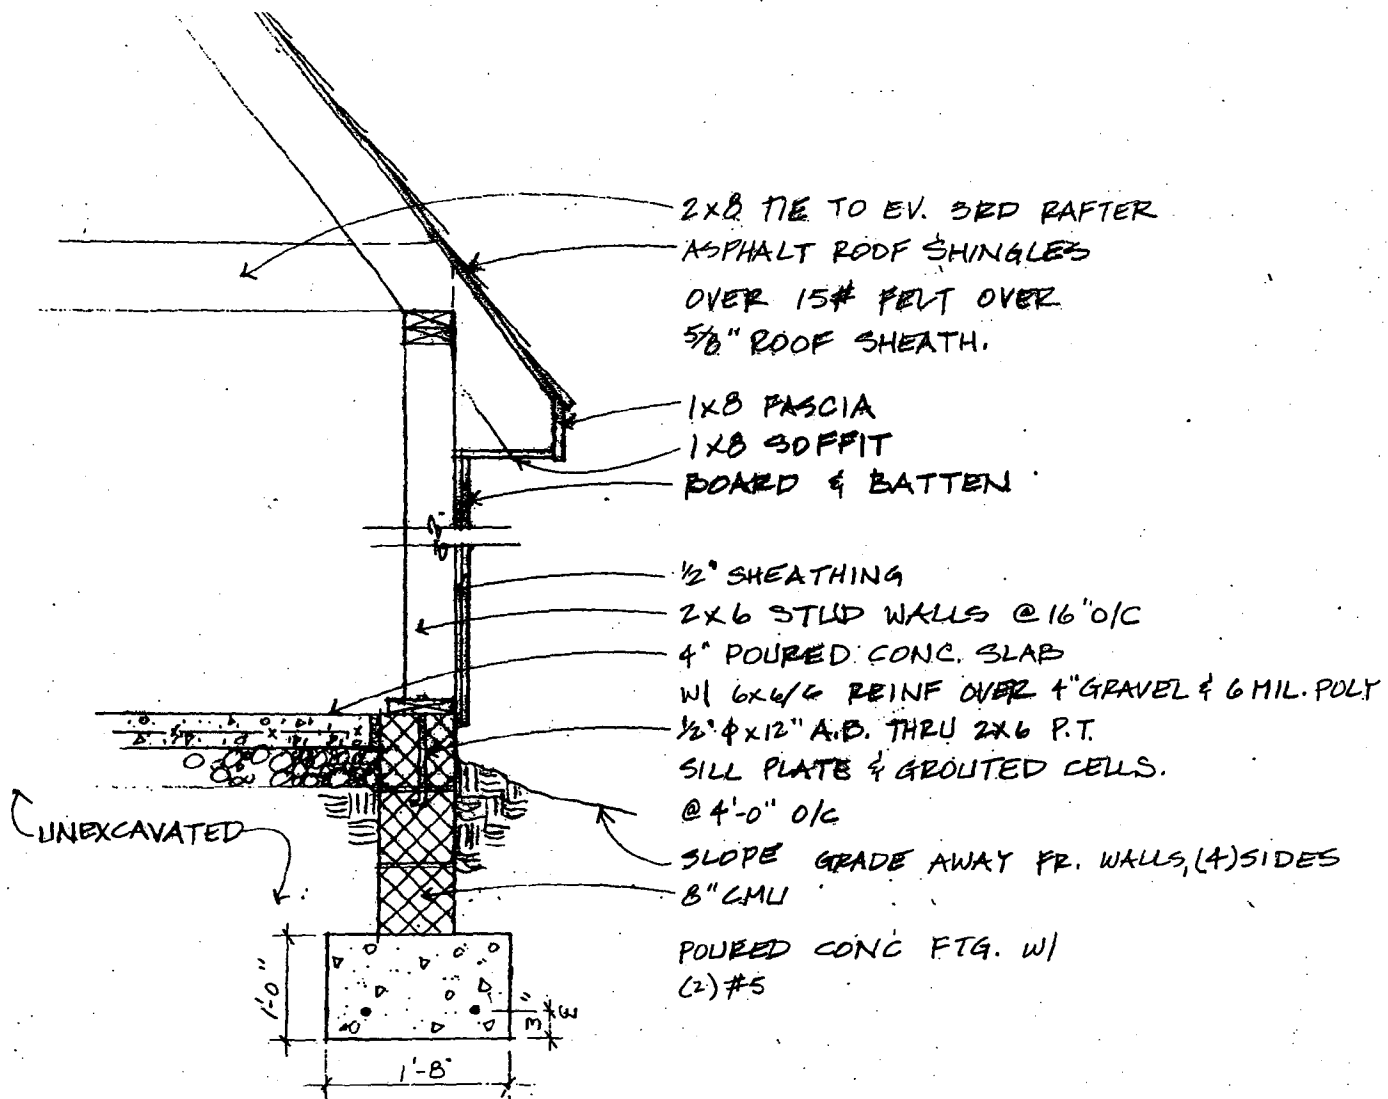 2x8 TIE TO EV. 3RD RAFTER
ASPHALT ROOF SHINGLES
OVER 15# FELT OVER
5/8" ROOF SHEATH.
1x8 FASCIA
1x8 SOFFIT
BOARD & BATTEN
1/2" SHEATHING
2x6 STUD WALLS @ 16" O/C
4" POURED CONC. SLAB
W/ 6x6/6 REINF OVER 4" GRAVEL & 6 MIL. POLY
1/2" φ x12" A.B. THRU 2x6 P.T.
SILL PLATE & GROUTED CELLS.
@ 4'-0" O/C
UNEXCAVATED
SLOPE GRADE AWAY FR. WALLS, (4) SIDES
8" CMU
POURED CONC FTG. W/
(2) #5
1'-0"
3"
1'-8"